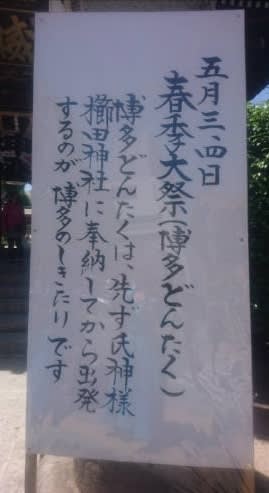 五月三、四日
春季大祭(博多どんたく)
博多どんたくは、先ず氏神様
櫛田神社に奉納してから出発
するのが博多のしきたりです